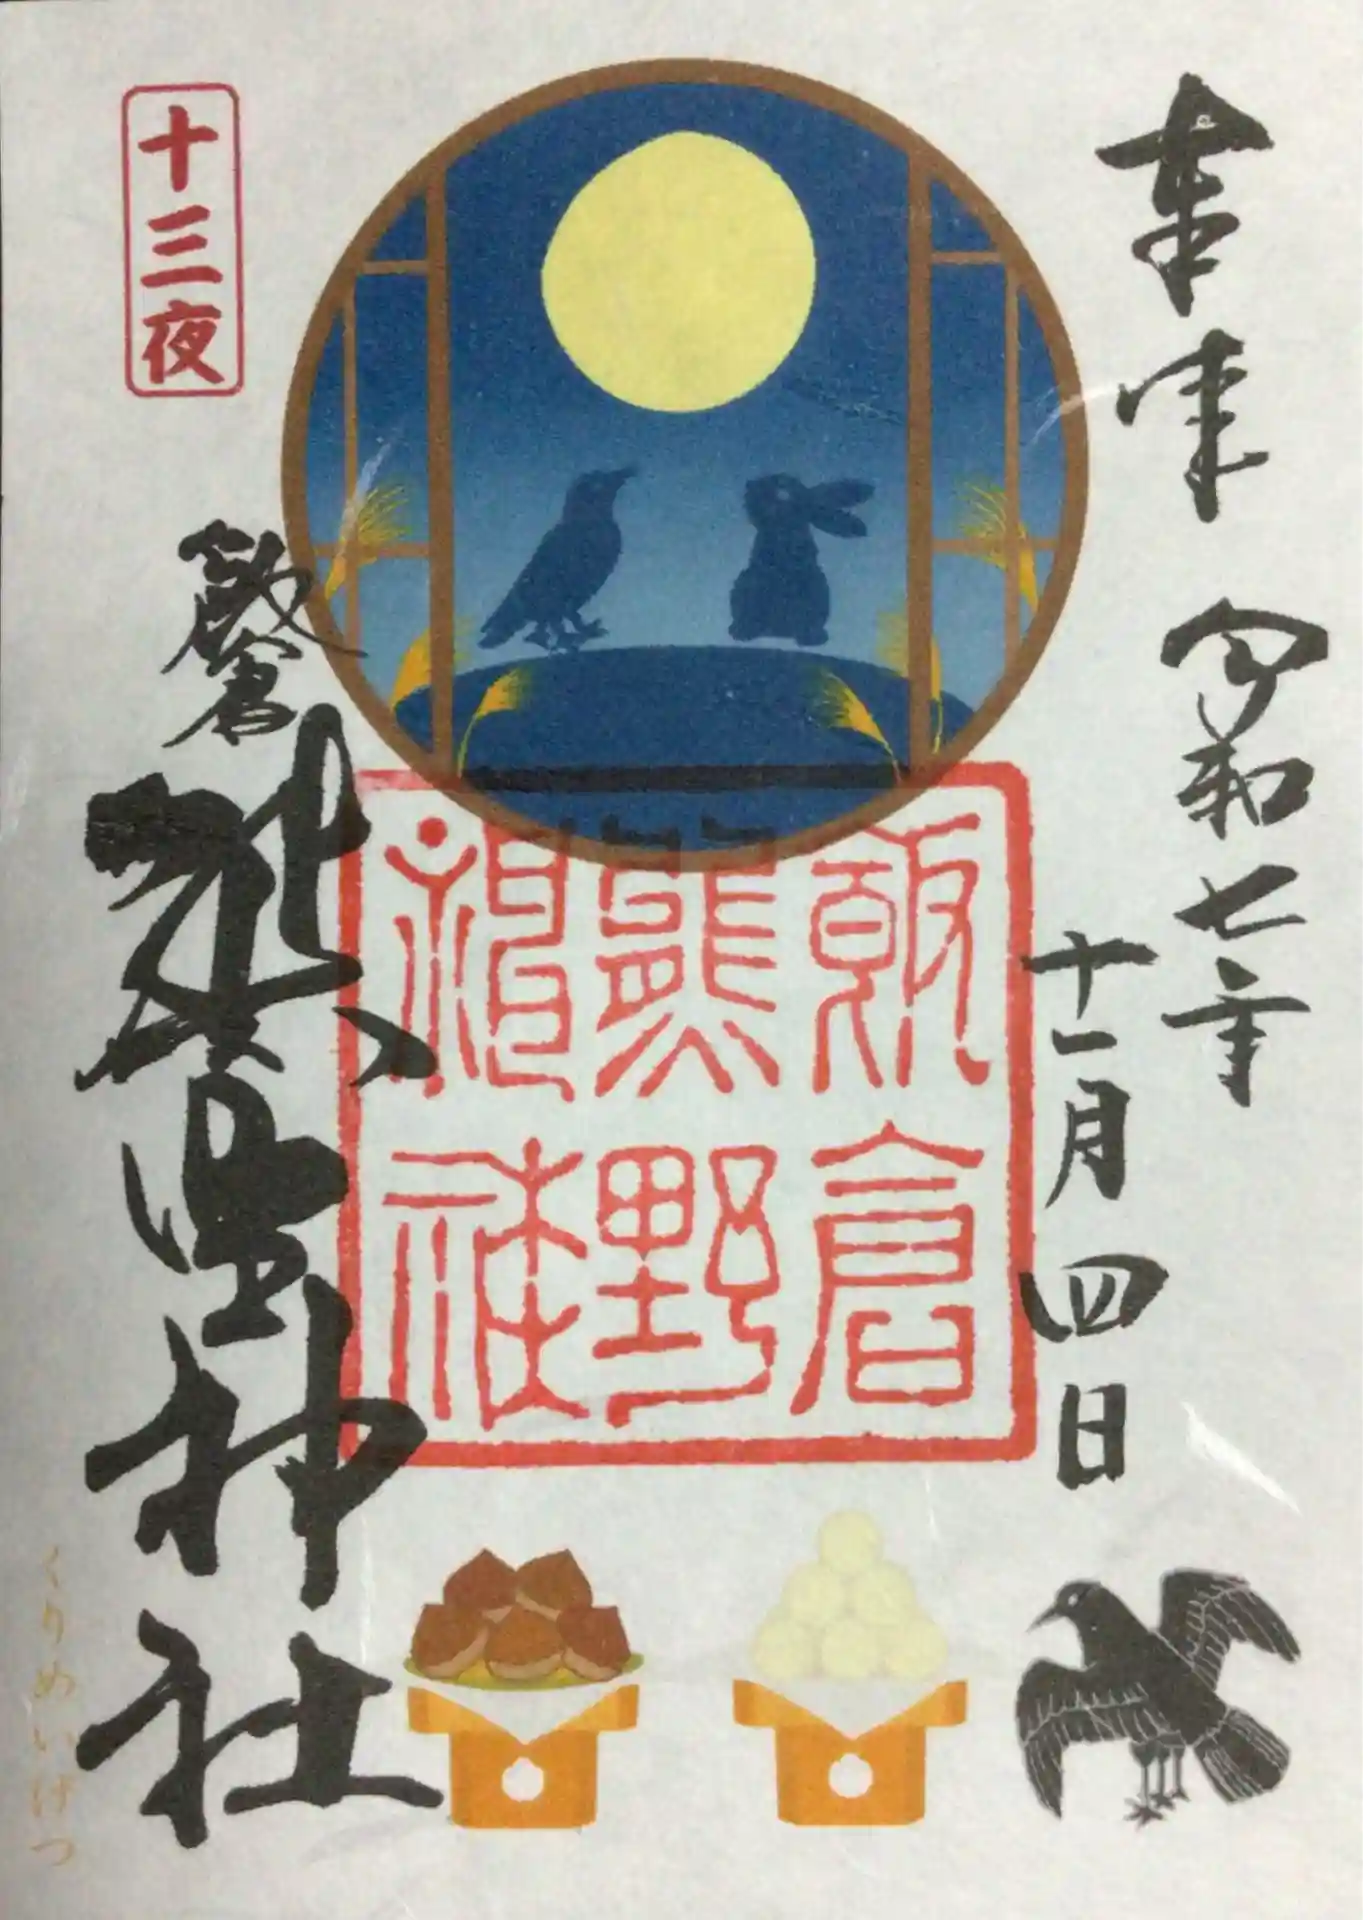 奉拝
令和七年
十一月四日
飯倉
熊野神社
飯倉
熊野
神社
十三夜
くりめいげつ